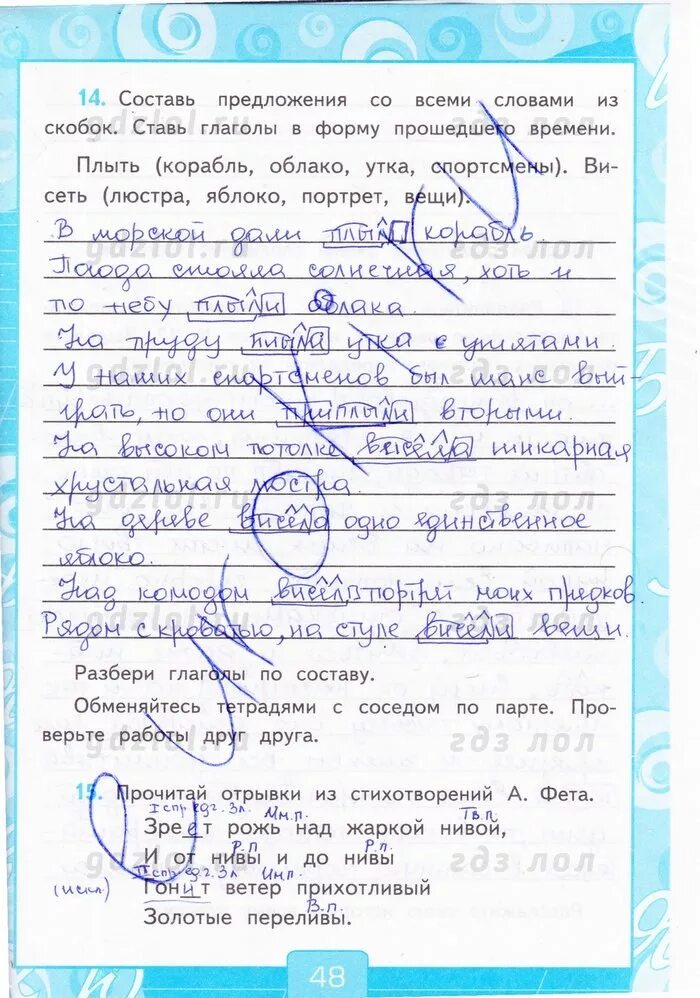 14. Составь предложения со всеми словами из
скобок. Ставь глаголы в форму прошедшего времени.
Плыть (корабль, облако, утка, спортсмены). Ви-
сеть (люстра, яблоко, портрет, вещи).
В морской дали плыл корабль.
Погода стояла солнечная, хоть и
по небу плыли облака.
На пруду плыла утка с утятами.
У наших спортсменов был шанс выи-
грать, но они приплыли вторыми.
На высоком потолке висела шикарная
хрустальная люстра.
На дереве висело одно единственное
яблоко.
Над комодом висел портрет моих предков.
Рядом с кроватью, на стуле висели вещи.
Разбери глаголы по составу.
Обменяйтесь тетрадями с соседом по парте. Про-
верьте работы друг друга.
15. Прочитай отрывки из стихотворений А. Фета.
I спр. ед.г. 3л. Им.п. Тв.п.
Зреет рожь над жаркой нивой,
Р.п. Р.п.
И от нивы и до нивы
II спр. ед.г. 3л Им.п.
(искл.) Гонит ветер прихотливый
В.п.
Золотые переливы.
48
gdzlol.ru
гдз лол
gdzlol.ru
гдз лол
gdzlol.ru
гдз лол
gdzlol.ru
гдз лол
gdzlol.ru
гдз лол
gdzlol.ru
гдз лол
gdzlol.ru
гдз лол
gdzlol.ru
гдз лол